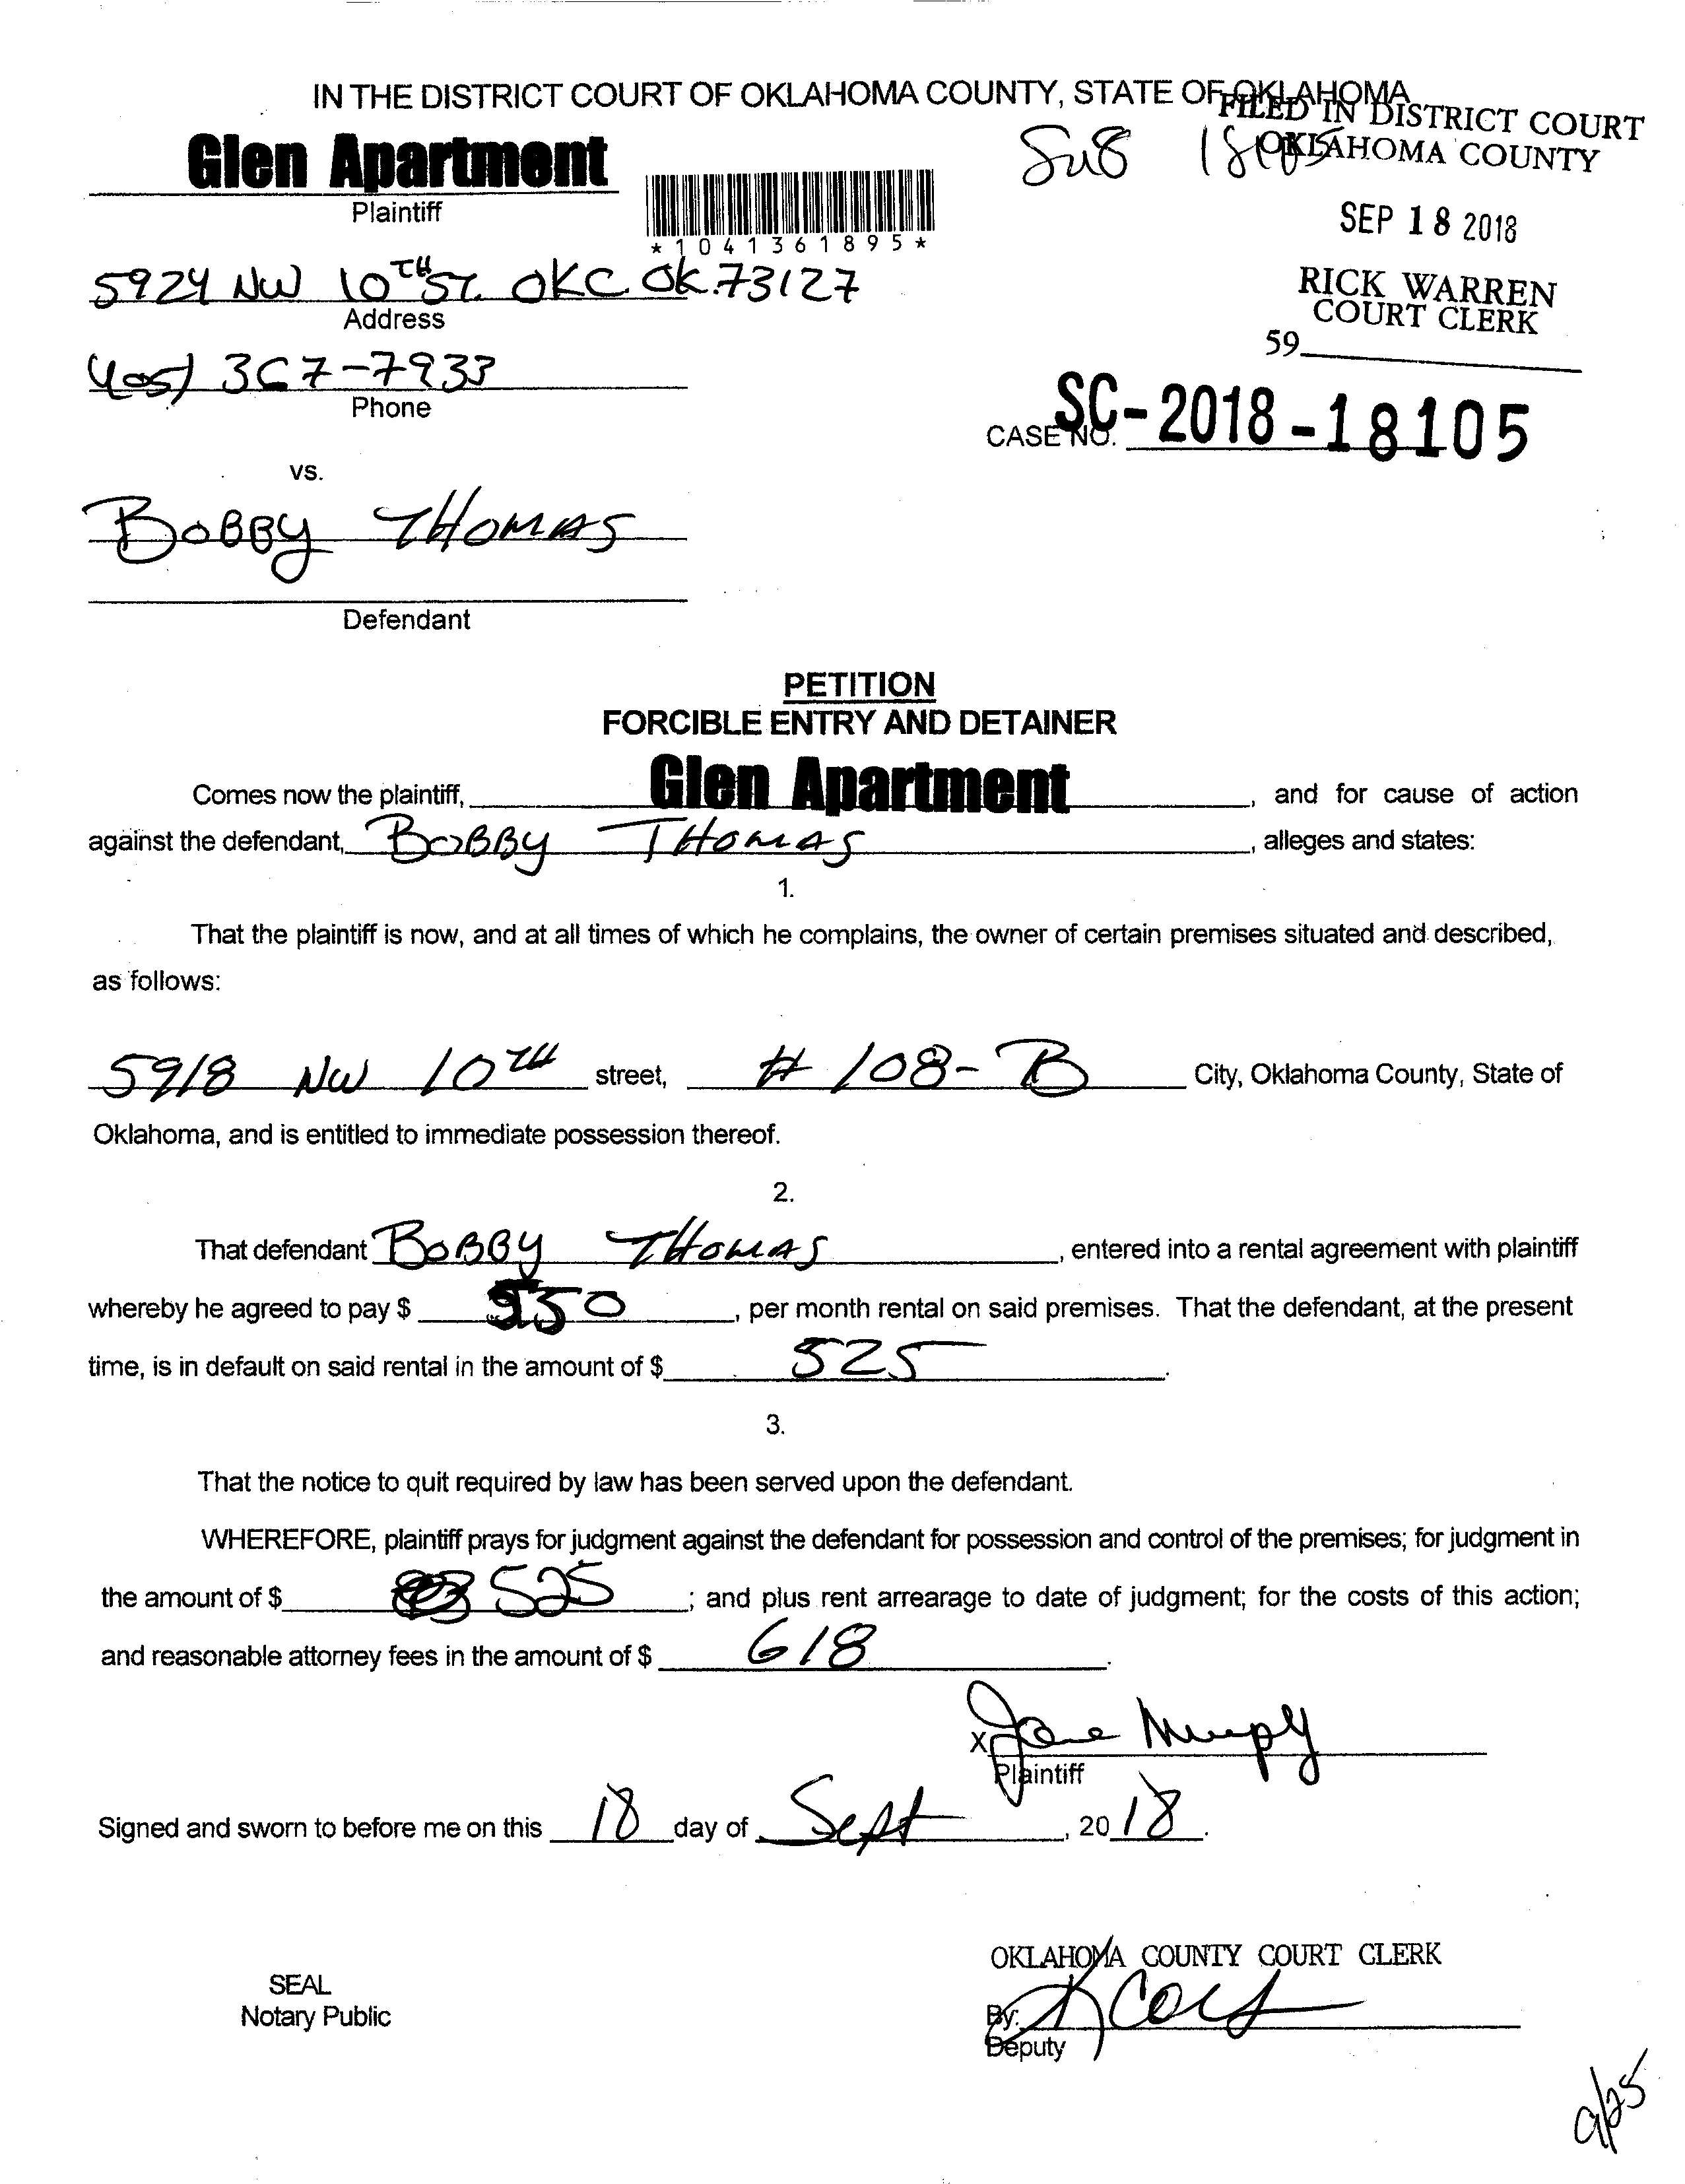 IN THE DISTRICT COURT OF OKLAHOMA COUNTY, STATE OF OKLAHOMA
FILED IN DISTRICT COURT
OKLAHOMA COUNTY
Glen Apartment
Plaintiff
*1041361895*
SEP 18 2018
5924 NW 10TH ST. OKC. OK. 73127
Address
RICK WARREN
COURT CLERK
59
(405) 367-7933
Phone
CASE NO. SC-2018-18105
vs.
BOBBY THOMAS
Defendant
PETITION
FORCIBLE ENTRY AND DETAINER
Comes now the plaintiff, Glen Apartment, and for cause of action
against the defendant, BOBBY THOMAS, alleges and states:
1.
That the plaintiff is now, and at all times of which he complains, the owner of certain premises situated and described,
as follows:
5918 NW 10TH street, # 108-B City, Oklahoma County, State of
Oklahoma, and is entitled to immediate possession thereof.
2.
That defendant BOBBY THOMAS, entered into a rental agreement with plaintiff
whereby he agreed to pay $ 550, per month rental on said premises. That the defendant, at the present
time, is in default on said rental in the amount of $ 525.
3.
That the notice to quit required by law has been served upon the defendant.
WHEREFORE, plaintiff prays for judgment against the defendant for possession and control of the premises; for judgment in
the amount of $ 525; and plus rent arrearage to date of judgment; for the costs of this action;
and reasonable attorney fees in the amount of $ 618.
X Jane Murphy
Plaintiff
Signed and sworn to before me on this 18 day of Sept, 2018.
OKLAHOMA COUNTY COURT CLERK
SEAL
Notary Public
By:
Deputy
9/25